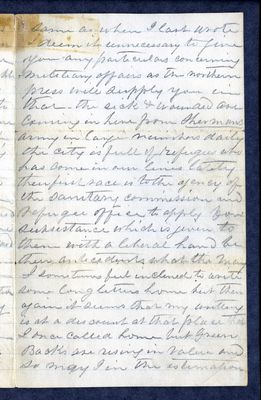 same as when I last wrote
I deem it unnecessary to give
you any particulars concerning
Military affairs as the northern
press will supply you in
that. the sick & wounded are
coming in here from Shermans
army in large numbers daily
the city is full of refugees who
has come in our lines lately
their first race is to the agency of
the Sanitary commission and
Refugee office to apply for
subsistance which is given to
them with a liberal hand be
their antecedents what they may
I sometimes feel inclined to write
some long letters home but then
again it seems that my writing
is at a discount at that place that
I once called home but Green
Backs are rising in value and
so may I in the estimation